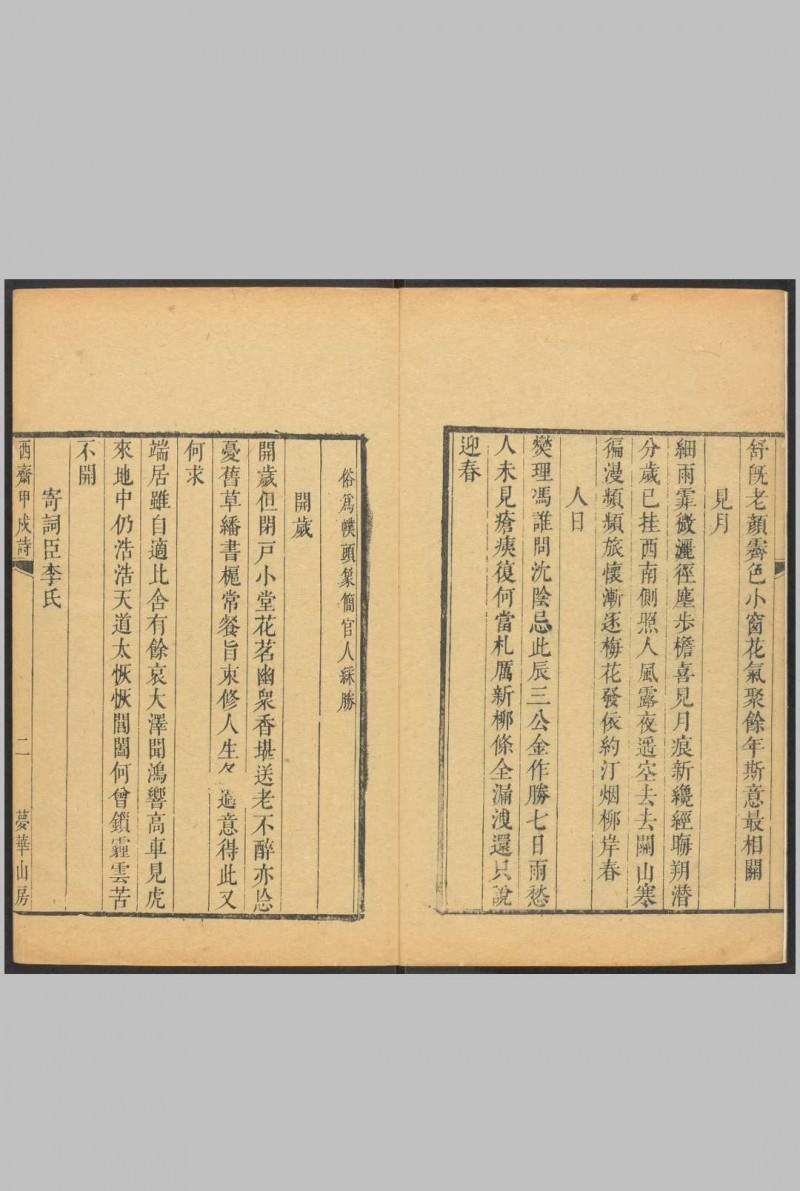 舒旣老顏霽色小窗花氣聚餘年斯意最相關
見月
細雨霏微灑徑塵步檐喜見月痕新纔經晦朔潛
分歲已挂西南側照人風露夜遥空去去關山寒
徧漫頻頻旅懷漸逐梅花發依約汀烟柳岸春
人日
爕理馮誰問沈陰忌此辰三公金作勝七日雨愁
人未見瘡痍復何當札厲新柳條全漏洩還只說
迎春
俗爲幞頭𥰡簡官人綵勝
開歲
開歲但閉戸小堂花茗幽衆香堪送老不醉亦忘
憂舊草繙書槴常餐旨束修人生々意得此又
何求
端居雖自適比舍有餘哀大澤聞鴻響高車見虎
來地中仍浩浩天道太恢恢閶闔何曾鎖霾雲苦
不開
寄詞臣李氏
西齋甲戍詩
二
夢華山房